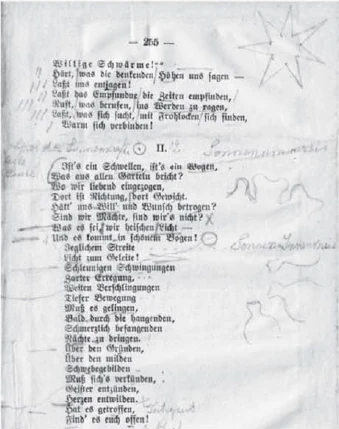 — 255 —
Willige Schwärme!"
Hört, was die denkenden Höhen uns sagen —
Laßt uns entsagen!
Laßt das Empfundne die Zeiten empfinden,
Ruft, was berufen, ins Werden zu ragen,
Laßt, was sich sucht, mit Frohlocken sich finden,
Warm sich verbinden!
II.
Ist's ein Schwellen, ist's ein Wogen,
Was aus allen Gürteln bricht?
Wo wir liebend eingezogen,
Dort ist Richtung, dort Gewicht.
Hätt' uns Will' und Wunsch betrogen?
Sind wir Mächte, sind wir's nicht?
Was es sei, wir heischen Licht —
Und es kommt in schönem Bogen!
Jeglichem Streite
Licht zum Geleite!
Schleunigen Schwingungen
Zarter Erregung,
Weiten Verschlingungen
Tiefer Bewegung
Muß es gelingen,
Bald durch die hangenden,
Schmerzlich befangenden
Nächte zu dringen.
Über den Gründen,
Über den milden
Schwebegebilden
Muß sich's verkünden,
Geister entzünden,
Herzen entwilden.
Hat es getroffen,
Find' es euch offen!